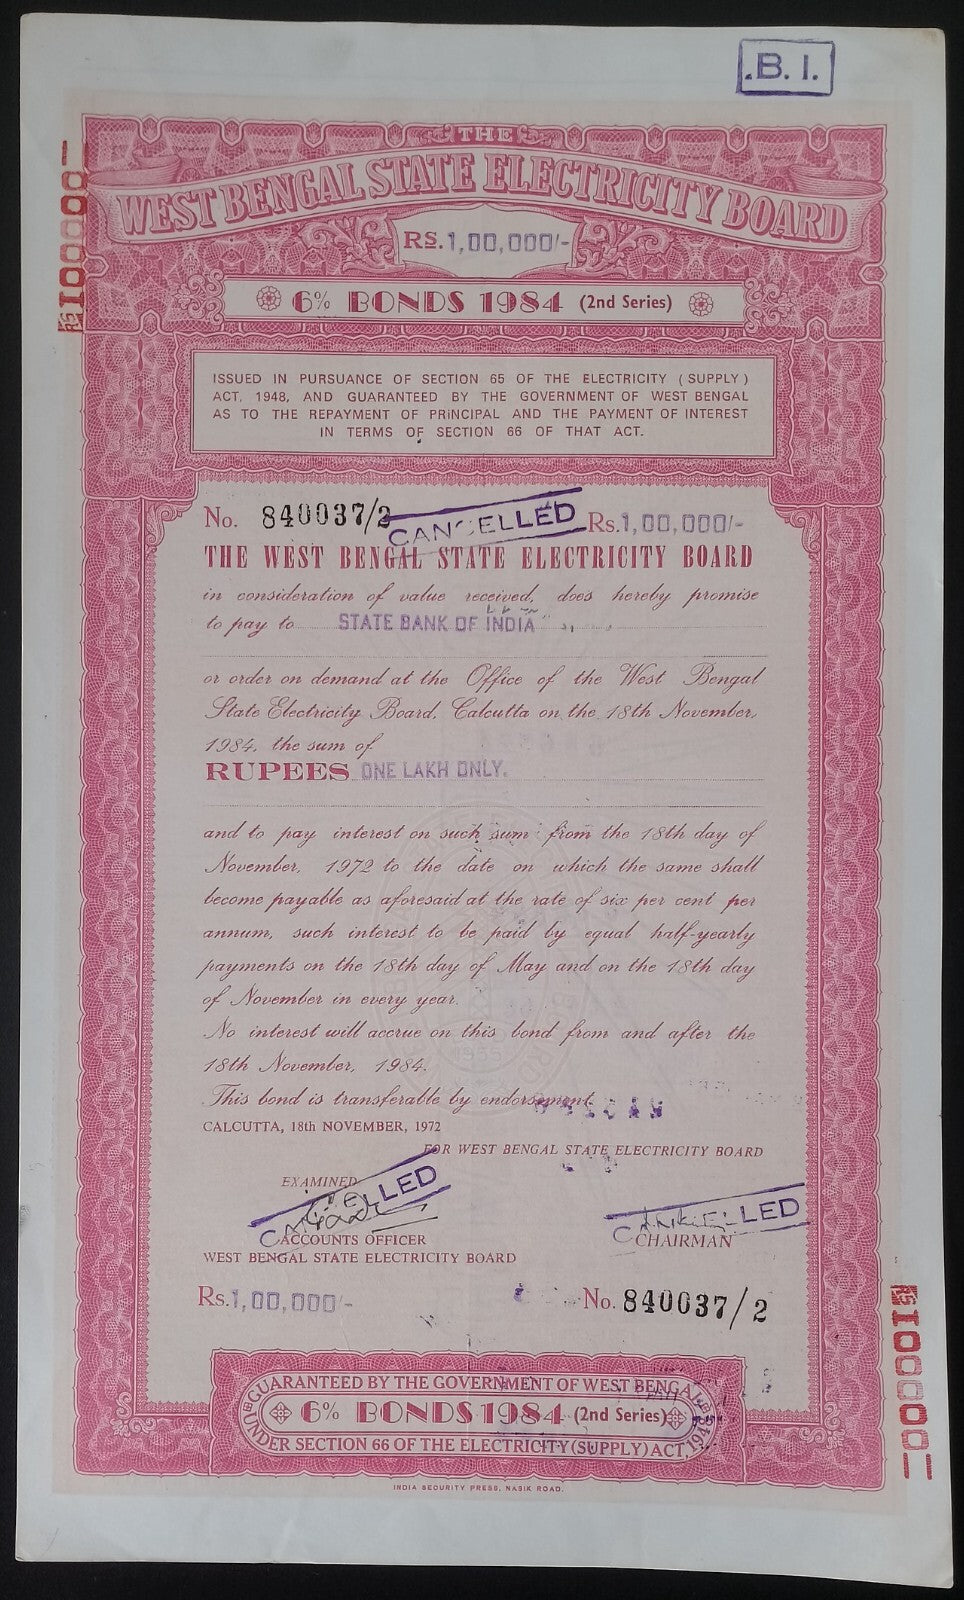 .B.I.
THE
WEST BENGAL STATE ELECTRICITY BOARD
RS.1,00,000/-
6% BONDS 1984 (2nd Series)
RS100000=
ISSUED IN PURSUANCE OF SECTION 65 OF THE ELECTRICITY (SUPPLY)
ACT, 1948, AND GUARANTEED BY THE GOVERNMENT OF WEST BENGAL
AS TO THE REPAYMENT OF PRINCIPAL AND THE PAYMENT OF INTEREST
IN TERMS OF SECTION 66 OF THAT ACT.
No. 840037/2 CANCELLED Rs.1,00,000/-
THE WEST BENGAL STATE ELECTRICITY BOARD
in consideration of value received, does hereby promise
to pay to STATE BANK OF INDIA
or order on demand at the Office of the West Bengal
State Electricity Board, Calcutta on the 18th November,
1984, the sum of
RUPEES ONE LAKH ONLY.
and to pay interest on such sum from the 18th day of
November, 1972 to the date on which the same shall
become payable as aforesaid at the rate of six per cent per
annum, such interest to be paid by equal half-yearly
payments on the 18th day of May and on the 18th day
of November in every year.
No interest will accrue on this bond from and after the
18th November, 1984.
This bond is transferable by endorsement
CALCUTTA, 18th NOVEMBER, 1972
FOR WEST BENGAL STATE ELECTRICITY BOARD
EXAMINED
CANCELLED
CANCELLED
ACCOUNTS OFFICER
CHAIRMAN
WEST BENGAL STATE ELECTRICITY BOARD
Rs.1,00,000/- No. 840037/2
RS100000=
GUARANTEED BY THE GOVERNMENT OF WEST BENGAL
6% BONDS 1984 (2nd Series)
UNDER SECTION 66 OF THE ELECTRICITY (SUPPLY) ACT, 1948
INDIA SECURITY PRESS, NASIK ROAD.